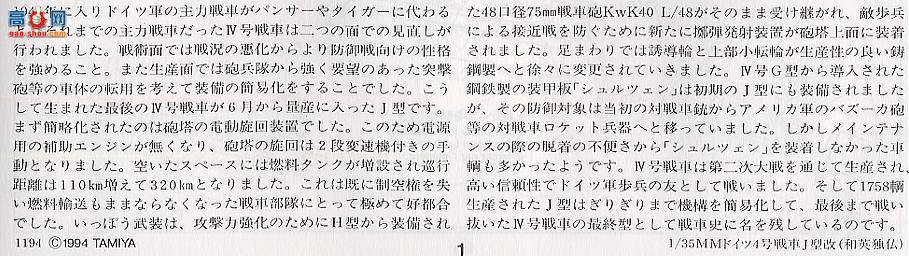 高网
1944年に入りドイツ軍の主力戦車がパンサーやタイガーに代わる
しまでの主力戦車だったⅣ号戦車は二つの面での見直しが
行われました。戦術面では戦況の悪化からより防御戦向けの性格
を強めること。また生産面では砲兵隊から強く要望のあった突撃
砲等の車体の転用を考えて装備の簡易化をすることでした。こう
して生まれた最後のⅣ号戦車が6月から量産に入ったJ型です。
まず簡略化されたのは砲塔の電動旋回装置でした。このため電源
用の補助エンジンが無くなり、砲塔の旋回は2段変速機付きの手
動となりました。空いたスペースには燃料タンクが増設され巡行
距離は110km増えて320kmとなりました。これは既に制空権を失
い燃料輸送もままならなくなった戦車部隊にとって極めて好都合
でした。いっぽう武装は、攻撃力強化のためにH型から装備され
1194 ©1994 TAMIYA
た48口径75mm戦車砲KwK40 L/48がそのまま受け継がれ、敵歩兵
による接近戦を防ぐために新たに擲弾発射装置が砲塔上面に装着
されました。足まわりでは誘導輪と上部小転輪が生産性の良い鋳
鋼製へと徐々に変更されていきました。Ⅳ号G型から導入された
鋼鉄製の装甲板「シュルツェン」は初期のJ型にも装備されました
が、その防御対象は当初の対戦車銃からアメリカ軍のバズーカ砲
等の対戦車ロケット兵器へと移っていました。しかしメインテナ
ンスの際の脱着の不便さから「シュルツェン」を装着しなかった車
輌も多かったようです。Ⅳ号戦車は第二次大戦を通じて生産され、
高い信頼性でドイツ軍歩兵の友として戦いました。そして1758輌
生産されたJ型はぎりぎりまで機構を簡易化して、最後まで戦い
抜いたⅣ号戦車の最終型として戦車史に名を残しているのです。
1
1/35MMドイツ4号戦車J型改(和英独仏)